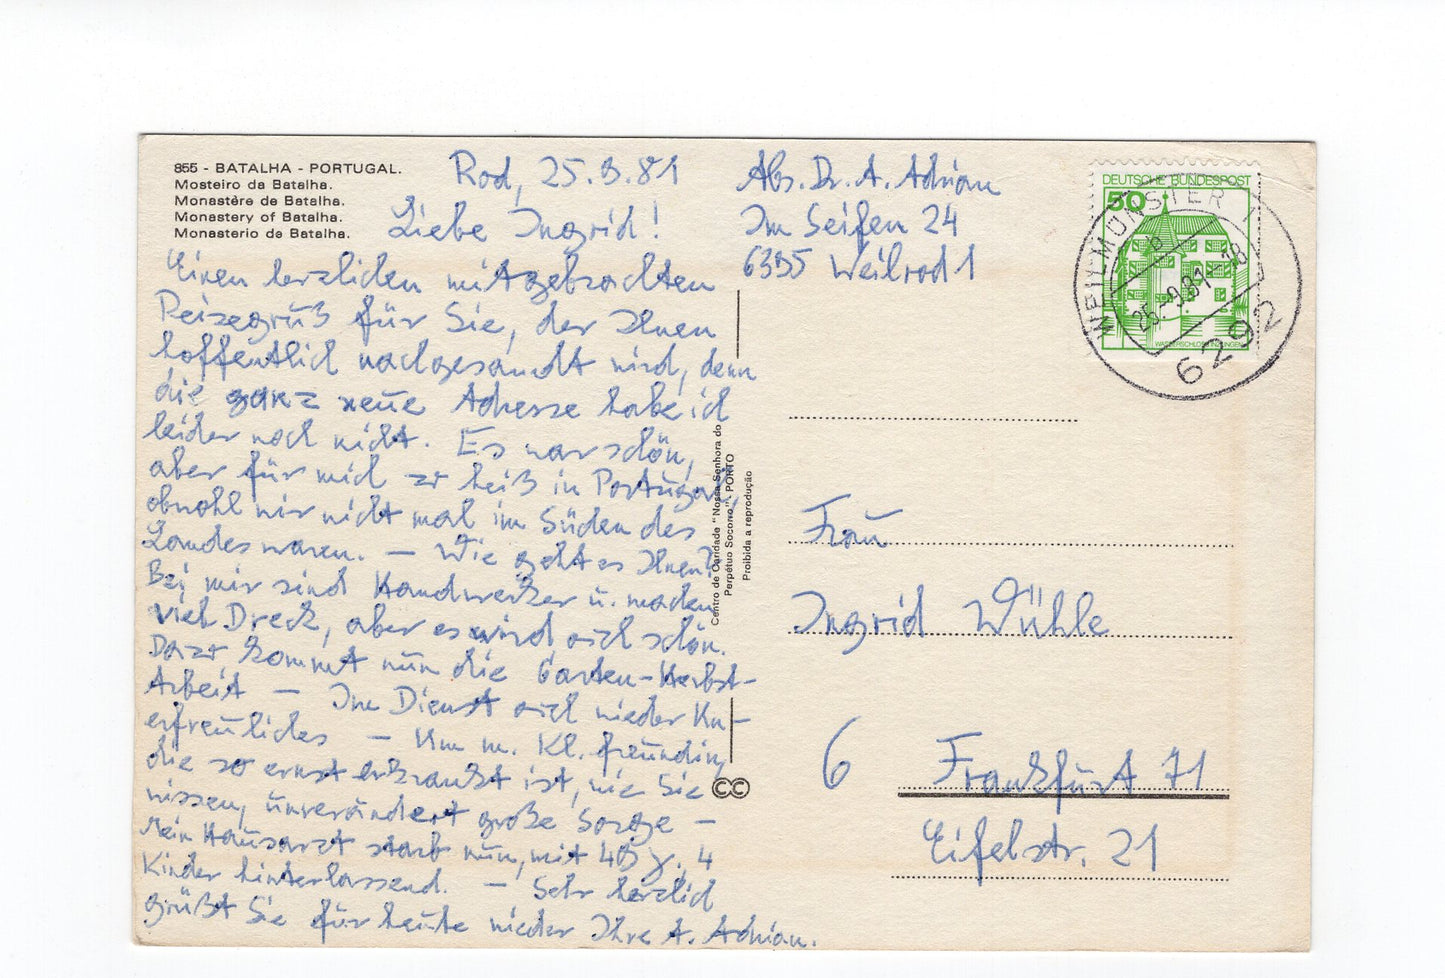 855 - BATALHA - PORTUGAL.
Mosteiro da Batalha.
Monastère de Batalha.
Monastery of Batalha.
Monasterio de Batalha.
Rod, 25.9.81
Liebe Ingrid!
Einen herzlichen mitgebrachten
Reisegruß für Sie, der Ihnen
hoffentlich nachgesandt wird, denn
die ganz neue Adresse habe ich
leider noch nicht. Es war schön,
aber für mich zu heiß in Portugal,
obwohl wir nicht mal im Süden des
Landes waren. – Wie geht es Ihnen?
Bei mir sind Handwerker u. machen
viel Dreck, aber es wird auch schön.
Dazu kommt nun die Garten-Herbst-
Arbeit – Im Dienst auch wieder Un-
erfreuliches – Um m. Kl. freundin,
die so ernst erkrankt ist, wie Sie
wissen, unverändert große Sorge –
Mein Hausarzt starb nun, mit 49 J., 4
Kinder hinterlassend. – Sehr herzlich
grüßt Sie für heute wieder Ihre A. Adrian.
Centro de Caridade "Nossa Senhora do
Perpétuo Socorro" - PORTO
Proibida a reprodução
CC
Abs. Dr. A. Adrian
Im Seifen 24
6395 Weilrod 1
DEUTSCHE BUNDESPOST
50
WASSERSCHLOSS INZLINGEN
WEILMÜNSTER 1
b
25.-9.81-18
6292
Frau
Ingrid Wühle
6 Frankfurt 71
Eifelstr. 21